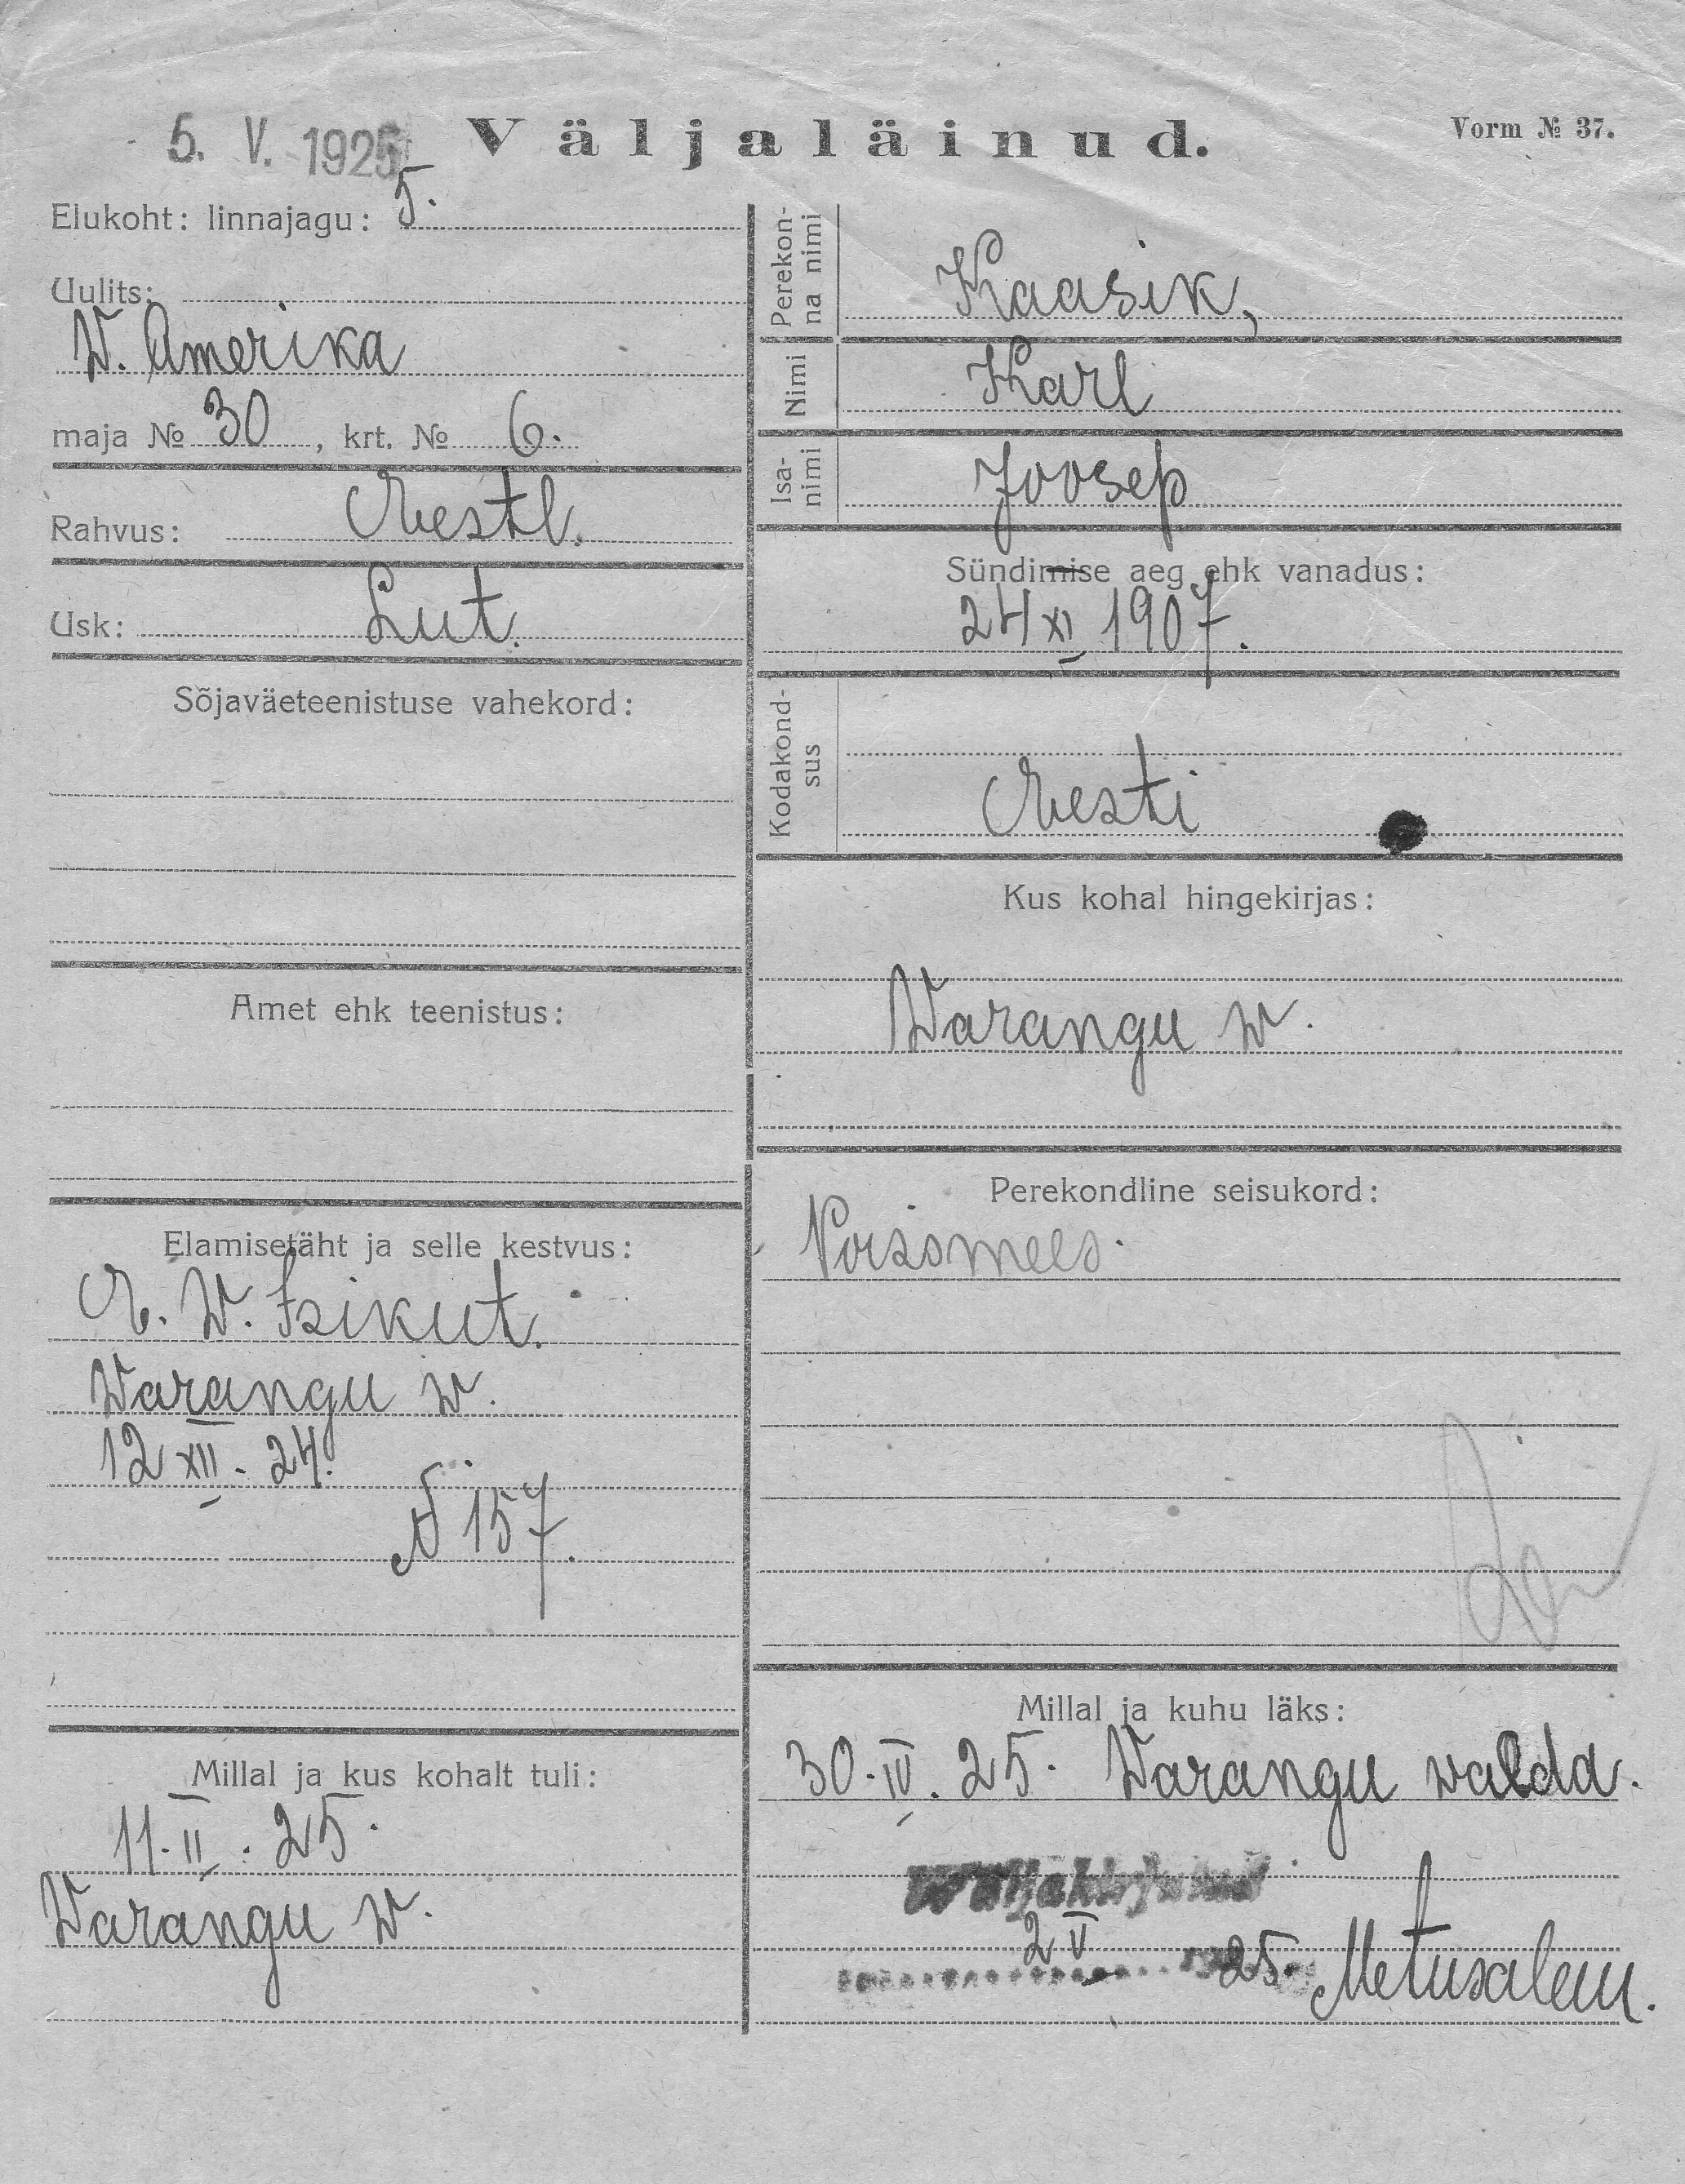 5. V. 1925
Väljaläinud.
Vorm № 37.
Elukoht: linnajagu: 5.
Uulits:
W. Amerika
maja № 30, krt. № 6.
Rahvus: Eestl.
Usk: Lut.
Sõjaväeteenistuse vahekord:
Amet ehk teenistus:
Elamisetäht ja selle kestvus:
E. W. Isikut.
Warangu w.
12 XII. 24.
№ 157.
Millal ja kus kohalt tuli:
11. II. 25.
Warangu w.
Perekon-
na nimi
Kaasik,
Nimi
Karl
Isa-
nimi
Joosep
Sündimise aeg ehk vanadus:
24 XI 1907.
Kodakond-
sus
Eesti
Kus kohal hingekirjas:
Warangu w.
Perekondline seisukord:
Poissmees.
Millal ja kuhu läks:
30. IV. 25. Warangu walda.
Wäljakirjutud
2 V 25. Metusalem.